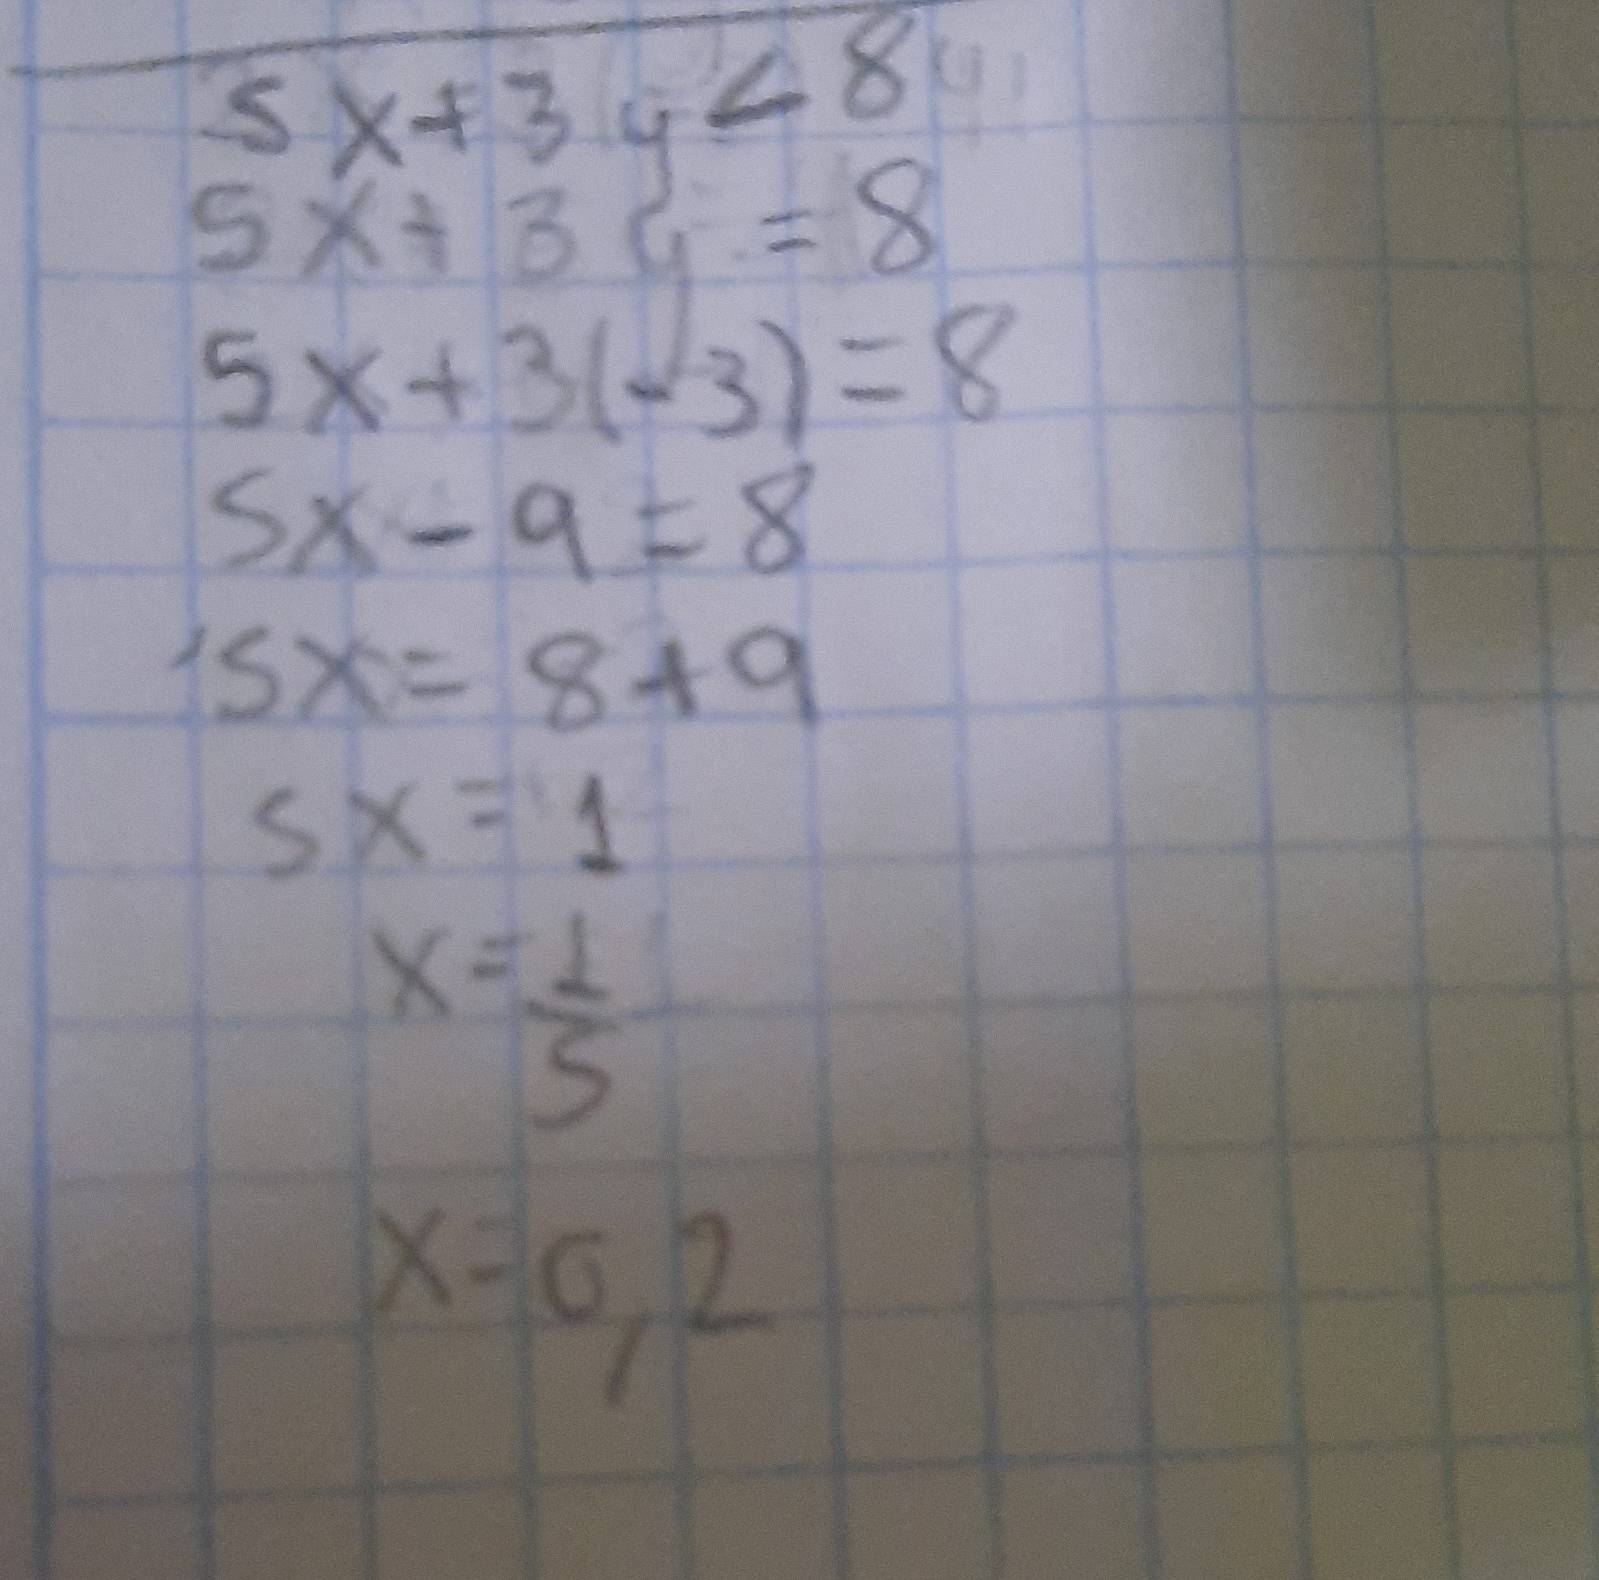 5x+3y<8
5x+3y=8
5x+3(-3)=8
5x-9=8
5x=8+9
5x=1
x=1/5
x=0,2